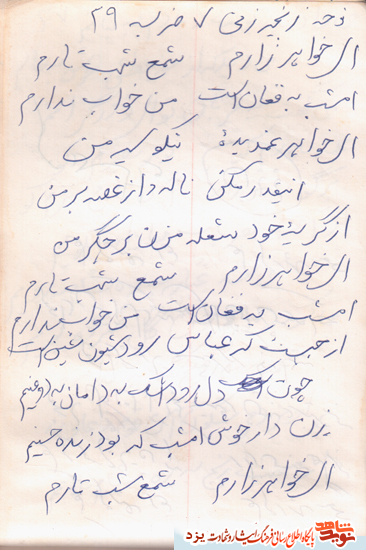 نوحه زنجیرزنی ۷ ضربه ۲۹
ال خواهر زارم شمع شب تارم
امشب به فغان است من خواب ندارم
ال خواهر غمدیده نیکو سیر من
اینقدر مکن ناله و از غصه بر من
از گریه خود شعله مزن بر جگر من
ال خواهر زارم شمع شب تارم
امشب به فغان است من خواب ندارم
از چیست که عباس رود شیون شین است
چون دل رود اشک به دامان به دو عینم
زن دار خوشی امشب که بود زنده حسینم
ال خواهر زارم شمع شب تارم
نوید شاهد
پایگاه اطلاع رسانی فرهنگ ایثار و شهادت یزد